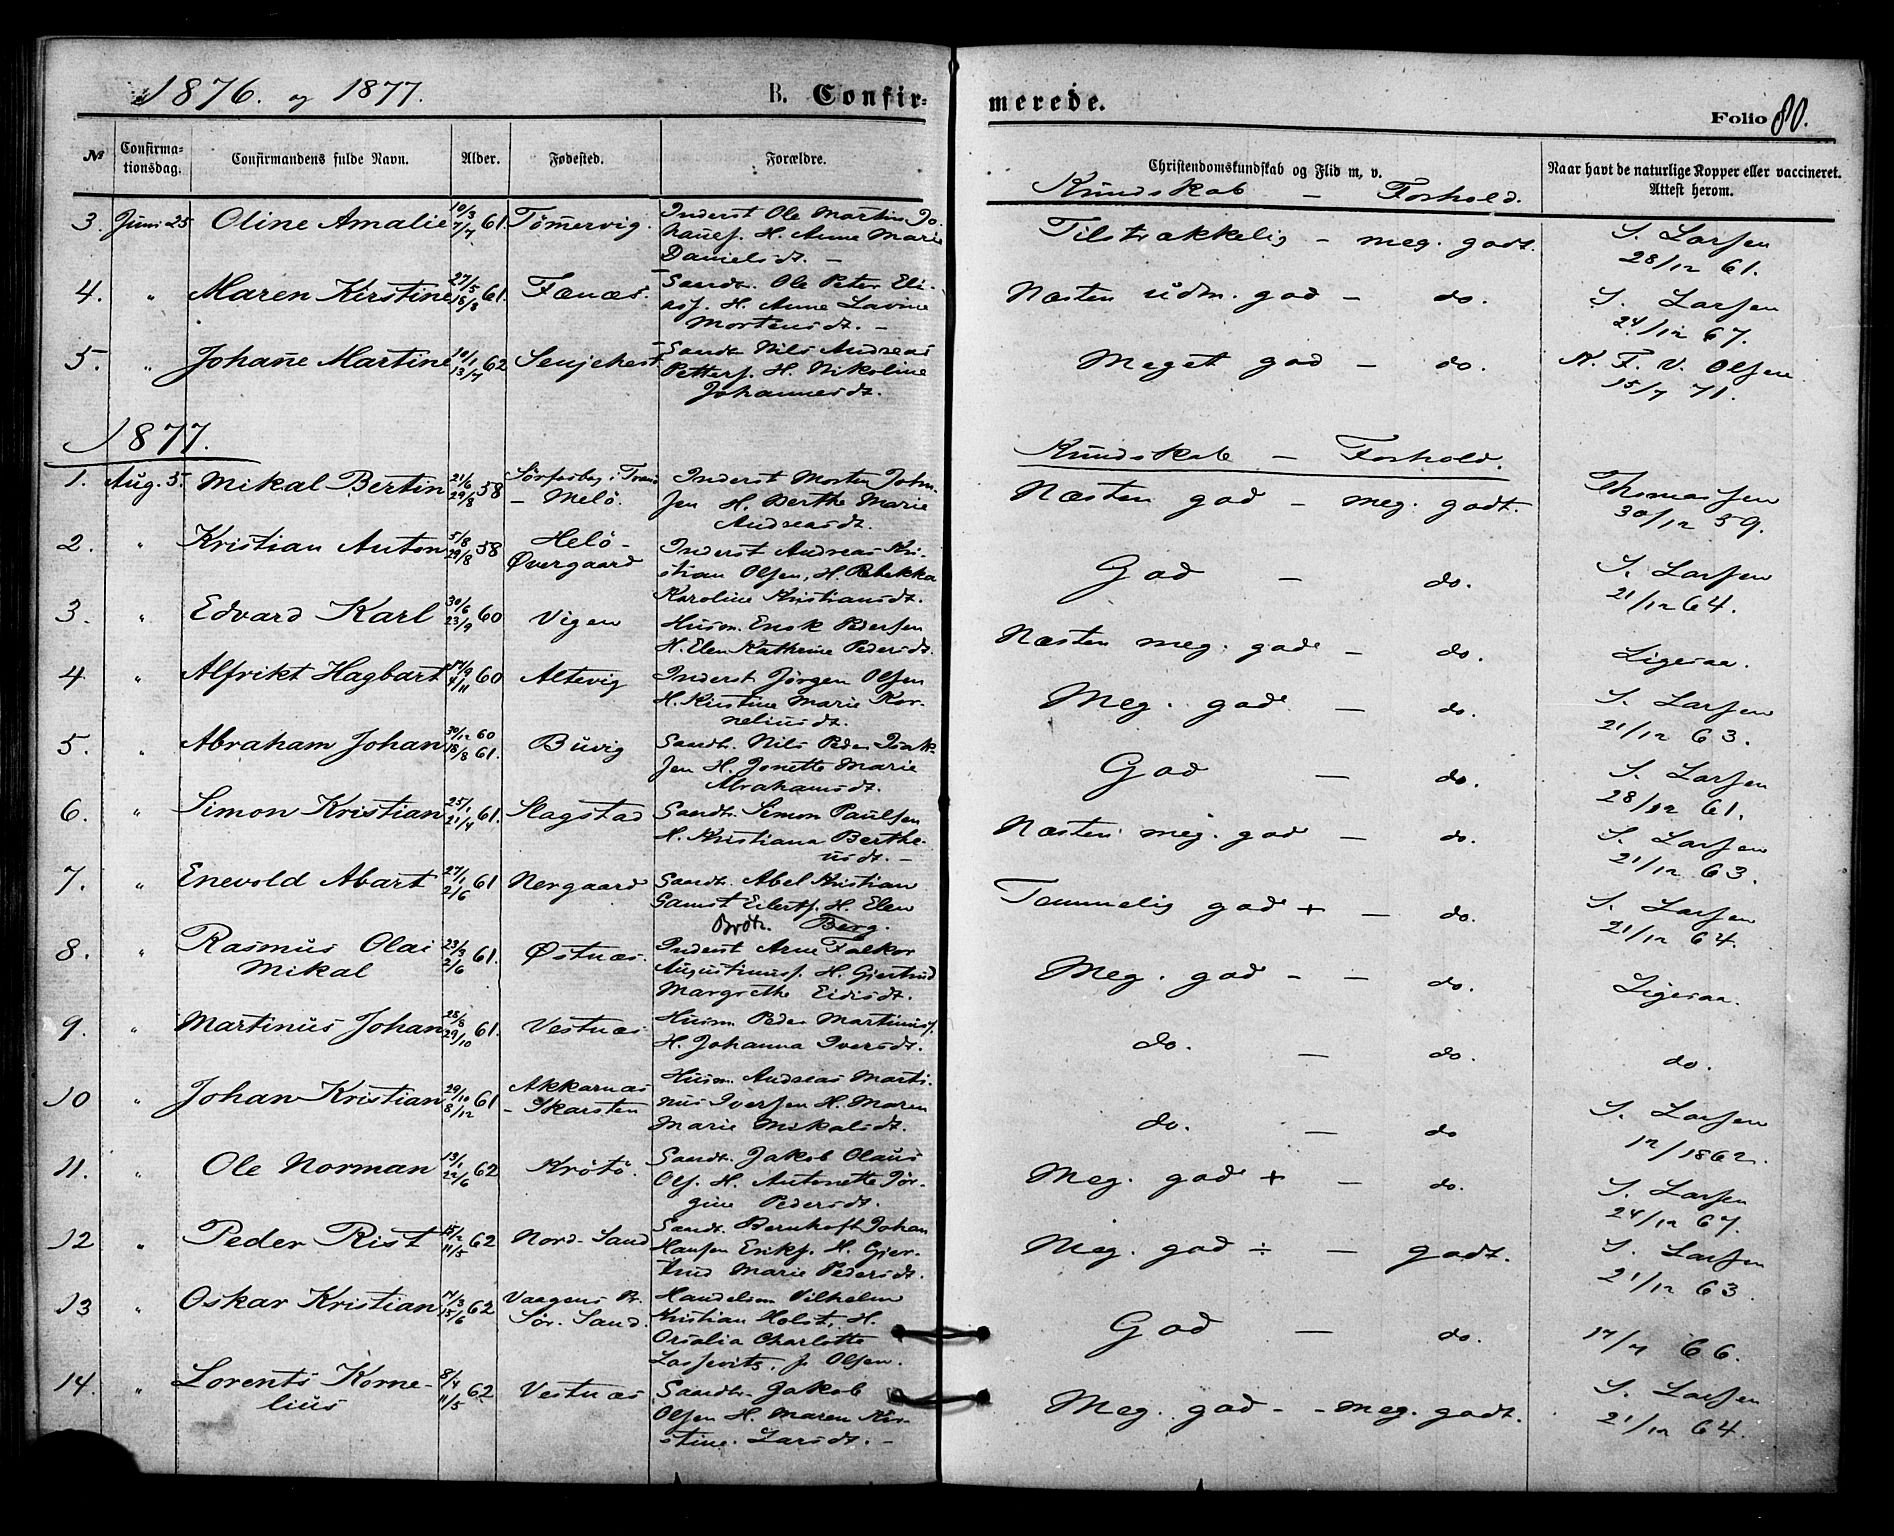 1876. og 1877.
B. Confir-
merede.
Folio 80.
№
Confirma-
tionsdag.
Confirmandens fulde Navn.
Alder.
Fødested.
Forældre.
Christendomskundskab og Flid m. v.
Naar havt de naturlige Kopper eller vaccineret.
Attest herom.
Kundskab – Forhold.
3. Juni 25 Oline Amalie 10/3 7/7 61. Tømervig. Inderst Ole Martin Jo-
hanesf. H. Anne Marie
Danielsdt. –
Tilstrækkelig – meg. godt. S. Larsen
28/12 61.
4. " Maren Kirstine 27/5 18/8 61. Fænæs. Sandtr. Ole Peter Eli-
asf. H. Anne Lavine
Mortensdt. –
Næsten udm. god – do. S. Larsen
24/12 67.
5. " Johane Martine 10/1 13/7 62 Senjehest Sandtr. Nils Andreas
Petters. H. Nikoline
Johannesdt.
Meget god – do. K. F. V. Olsen
15/7 71.
1877.
Kundskab – Forhold.
1. Aug. 5. Mikal Bertin 21/6 29/8 58 Sørfarbog i Tranø
– Melö. Inderst Morten John-
sen H. Berthe Marie
Andreasdt.
Næsten god – meg. godt. Thomassen
30/12 59.
2. " Kristian Anton 5/8 29/8 58 Helö –
Øvergaard Inderst Andreas Kri-
stian Olsen, H. Rebekka
Karoline Kristiansdt.
God – do. S. Larsen
21/12 64.
3. " Edvard Karl 30/6 23/9 60 Vigen Husm. Enok Pedersen
H. Elen Kathrine Pedersdt.
Næsten meg. god – do. Ligesaa.
4 " Alfrikt Hagbart 14/9 4/11 60 Altevig Inderst Jørgen Olsen
H. Kirstine Marie Kor-
neliusdt.
Meg. god – do. S. Larsen
21/12 63.
5. " Abraham Johan 30/12 60 18/8 61. Buvig Sandtr. Nils Peder Isak-
sen H. Jonette Marie
Abrahamsdt.
God – do. S. Larsen
28/12 61.
6. " Simon Kristian 25/1 21/4 61. Slagstad Sandtr. Simon Paulsen
H. Kristiana Berthe-
usdt. –
Næsten meg. god – do. S. Larsen
21/12 63.
7. " Enevold Abart 27/1 2/6 61 Nergaard Sandtr. Abel Kristian
Gamst Eilertf. H. Elen
Brotr. Berg.
Temmelig god + – do. S. Larsen
21/12 64.
8. " Rasmus Olai
Mikal 23/3 2/6 61. Østnæs. Inderst Arne Falkor
Augustinusf. H. Gjertrud
Margrethe Eidisdt.
Meg. god – – do. Ligesaa.
9. " Martinus Johan 28/8 29/10 61. Vestnæs Husm. Peder Martinusf.
H. Johanna Iversdt.
do. – do. do.
10 " Johan Kristian 29/10 8/12 61 Akkarnæs
– Skarsten Husm. Andreas Marti-
nus Iversen H. Maren
Marie Mikalsdt.
do. – do S. Larsen
12/1862.
11. " Ole Norman 13/1 22/6 62 Krötö. Sandtr. Jakob Olaus
Olsf. H. Antonette Jør-
gine Pedersdt.
Meg. god + – do. S. Larsen
24/12 67.
12 " Peder Rist 15/2 11/5 62 Nord-Sand Sandtr. Bernhoft Johan
Hansen Eriksf. H. Gjer-
trud Marie Pedersdt.
Meg. god ÷ – godt. S. Larsen
21/12 63.
13 " Oskar Kristian 17/3 15/6 62 Vaagens Pr.
Sør. Sand. Handelsm. Vilhelm
Kristian Holst, H.
Orsalia Charlotte
f. Olsen.
God – do. 17/7 66.
14. " Lorents Korne-
lius 8/4 11/5 62 Vestnæs Sandtr. Jakob
Olsen H. Maren Kir-
stine Larsdt. –
Meg. god – – meg. godt. S. Larsen
21/12 64.